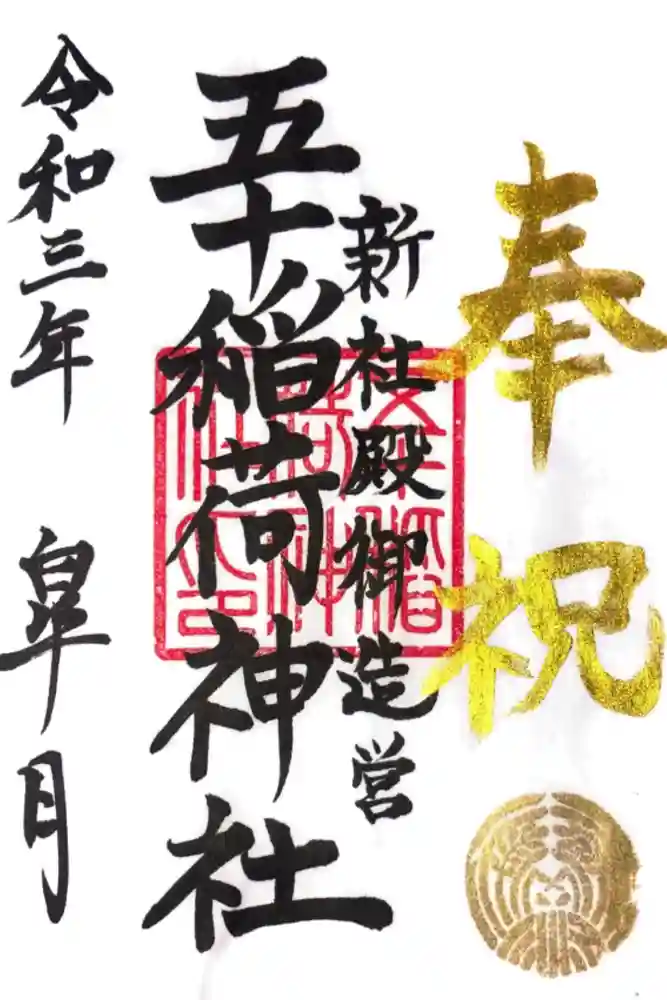 奉祝
新社殿御造営
五十稲荷神社
令和三年 皐月